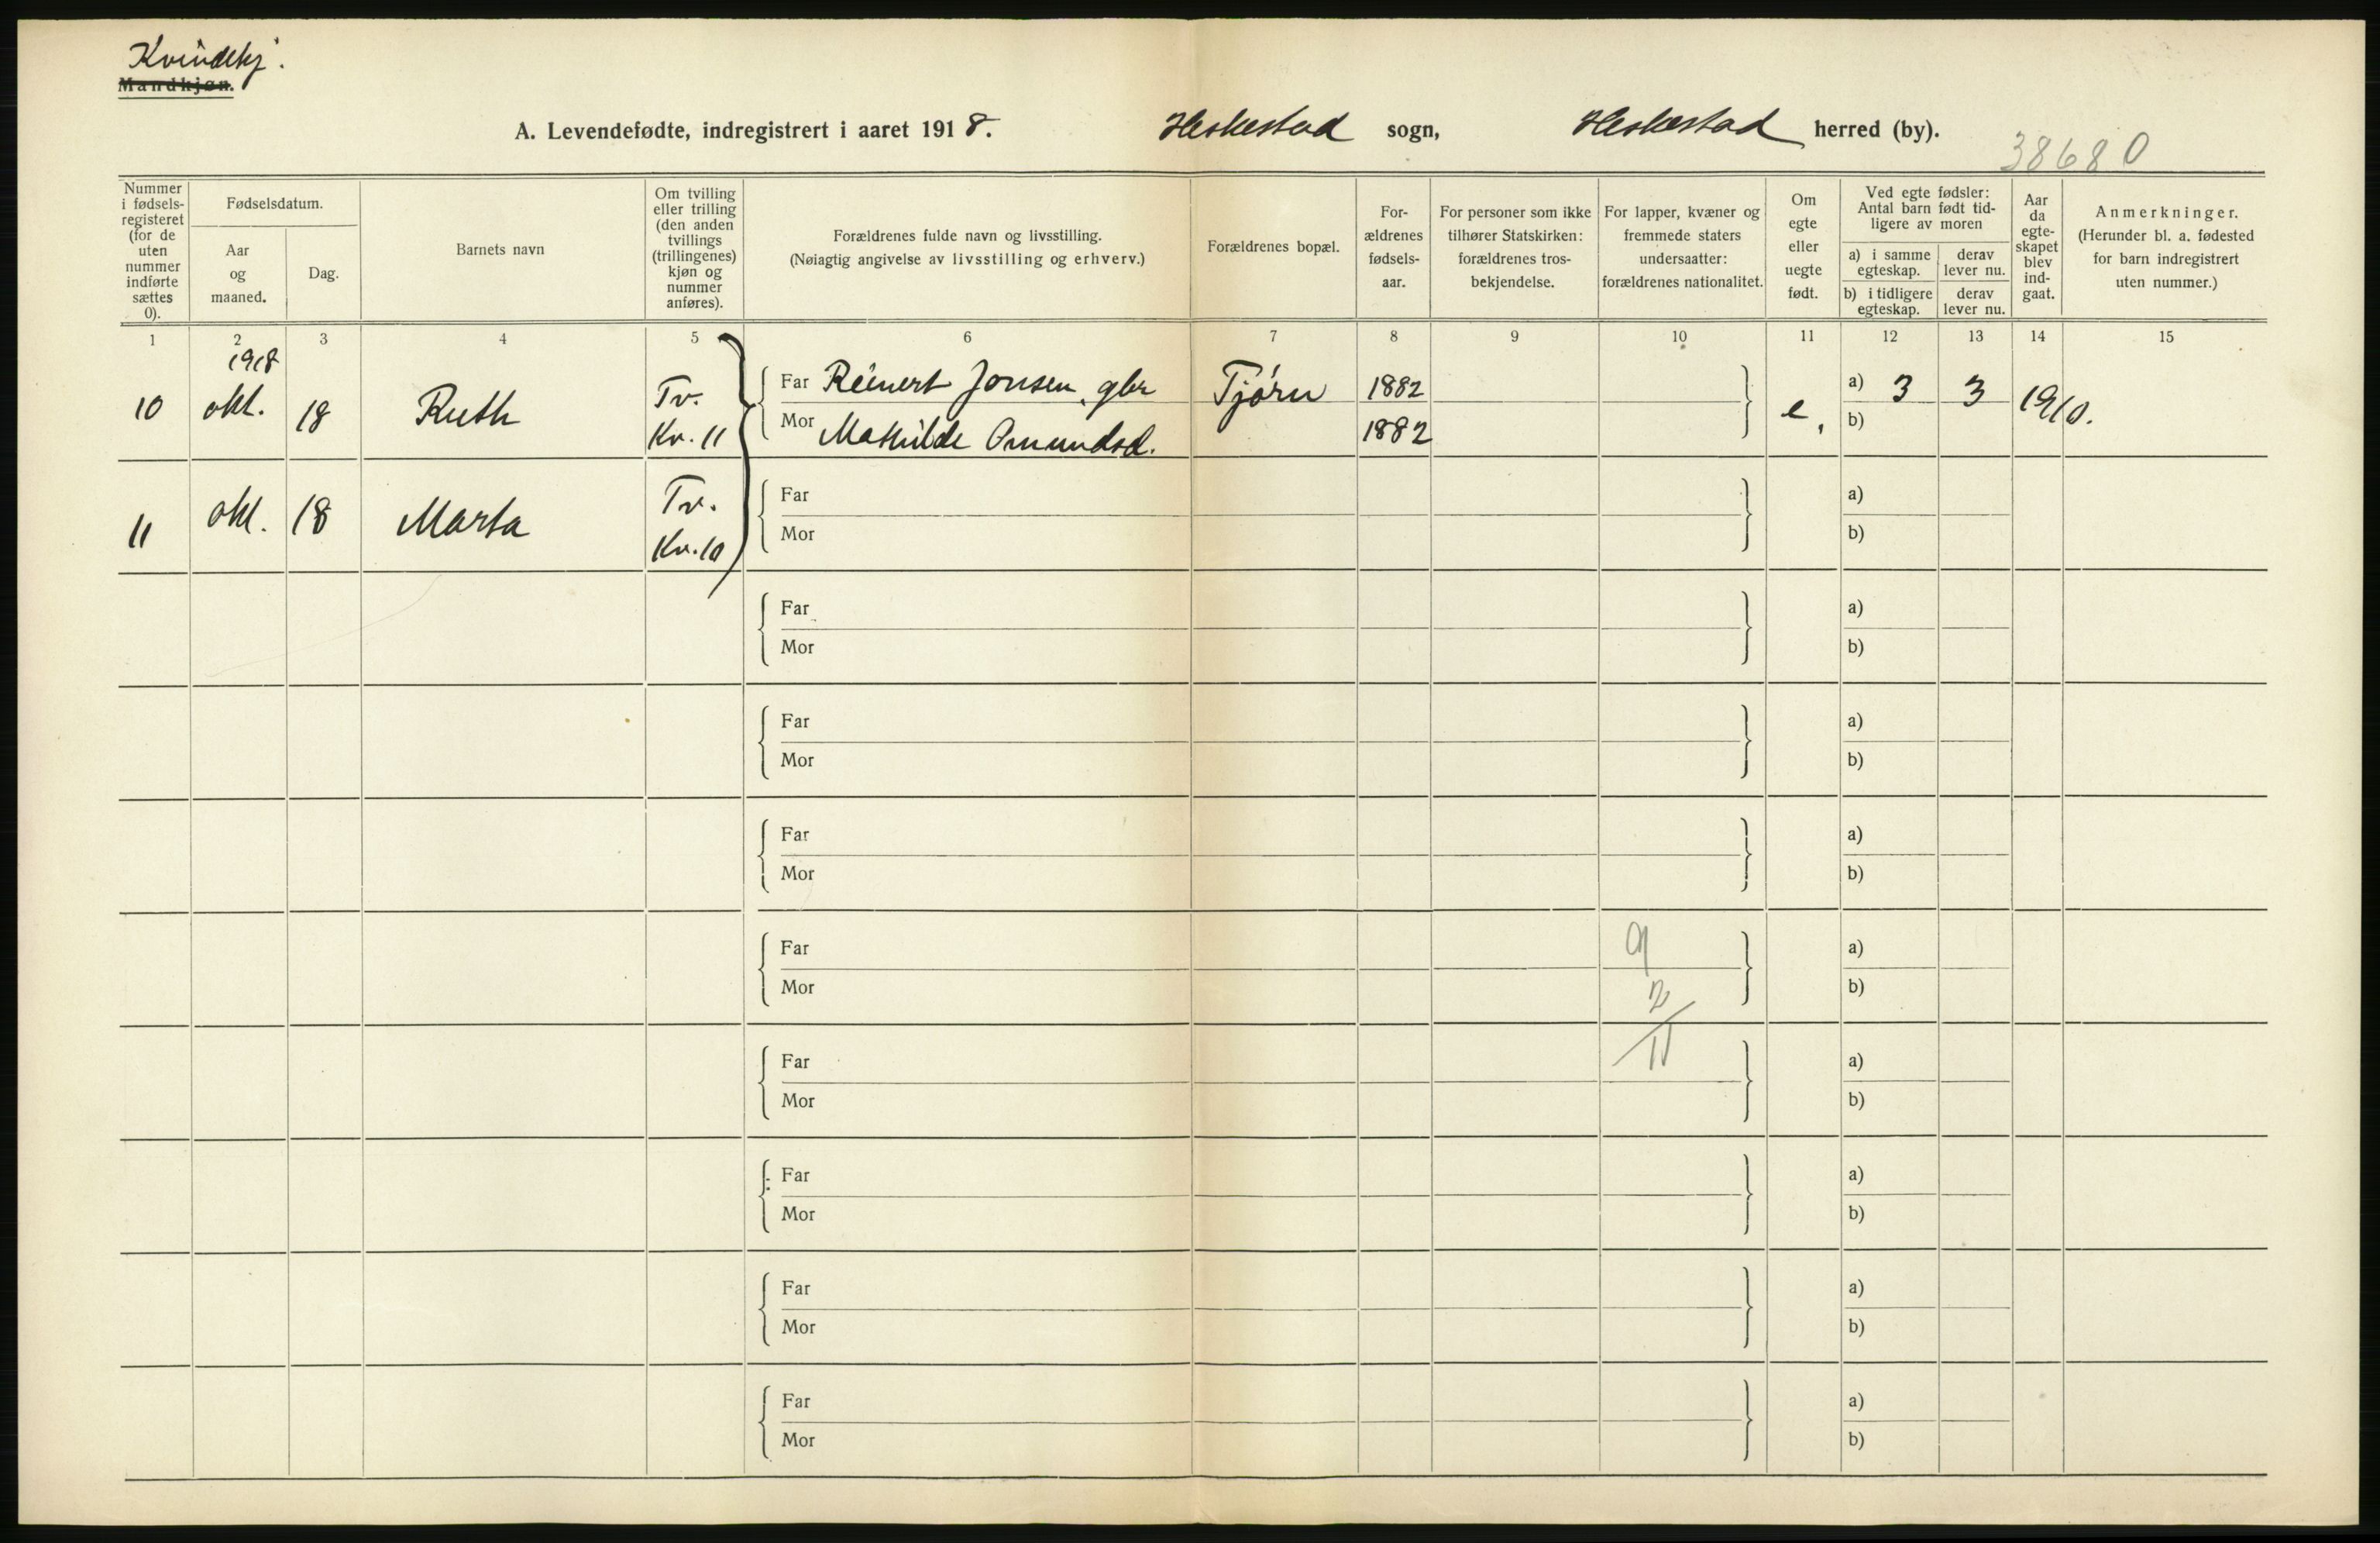 Kvindekj.
Mandkjøn.
A. Levendefødte, indregistrert i aaret 1918. Heskestad sogn, Heskestad herred (by).
38680
Nummer i fødsels-registeret (for de uten nummer indførte sættes 0).
Fødselsdatum.
Aar og maaned.
Dag.
Barnets navn
Om tvilling eller trilling (den anden tvillings (trillingenes) kjøn og nummer anføres).
Forældrenes fulde navn og livsstilling.
(Nøiagtig angivelse av livsstilling og erhverv.)
Forældrenes bopæl.
For-ældrenes fødsels-aar.
For personer som ikke tilhører Statskirken: forældrenes tros-bekjendelse.
For lapper, kvæner og fremmede staters undersaatter: forældrenes nationalitet.
Om egte eller uegte født.
Ved egte fødsler: Antal barn født tid-ligere av moren
a) i samme egteskap.
derav lever nu.
b) i tidligere egteskap.
derav lever nu.
Aar da egte-skapet blev ind-gaat.
Anmerkninger.
(Herunder bl. a. fødested for barn indregistrert uten nummer.)
1 2 3 4 5 6 7 8 9 10 11 12 13 14 15
1918
10 okt. 18 Ruth Tv. Kv. 11 Far Reinert Jonsen, gbr Tjørn 1882 e. a) 3 3 1910.
Mor Mathilde Omundsd. 1882 b)
11 okt. 18 Marta Tv. Kv. 10 Far a)
Mor b)
Far a)
Mor b)
Far a)
Mor b)
Far a)
Mor b)
Far 9 a)
Mor 2 b)
Far 11 a)
Mor b)
Far a)
Mor b)
Far a)
Mor b)
Far a)
Mor b)